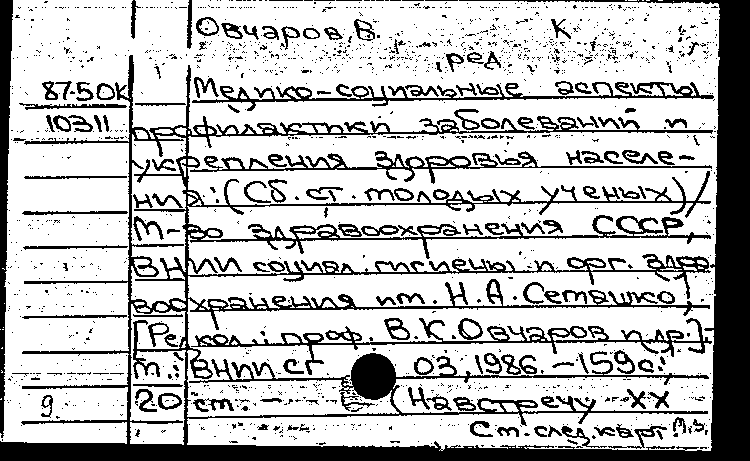 Овчаров, В. К
, ред.
87-50К Медико-социальные аспекты
10311 профилактики заболеваний и
укрепления здоровья населе-
ния: (Сб. ст. молодых ученых) /
М-во здравоохранения СССР,
ВНИИ социал. гигиены и орг. здра-
воохранения им. Н. А. Семашко;
[Редкол.: проф. В. К. Овчаров и др.].-
М.: ВНИИСГ 03, 1986. - 159 с.;
9. 20 см. - (Навстречу XX
См. след. карт.